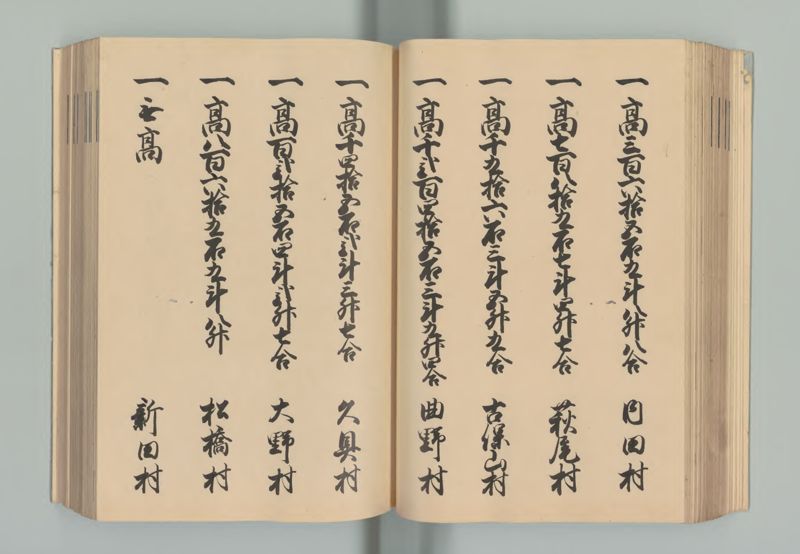 一高三百六拾五石九斗八升八合 内田村
一高七百八拾九石七斗四升七合 萩尾村
一高千九拾六石三斗五升九合 古保山村
一高千弐百四拾五石三斗九升四合 曲野村
一高千四拾五石弐斗三升七合 久具村
一高百弐拾五石四斗弐升七合 大野村
一高八百六拾九石九斗八升 松橋村
一無高 新田村